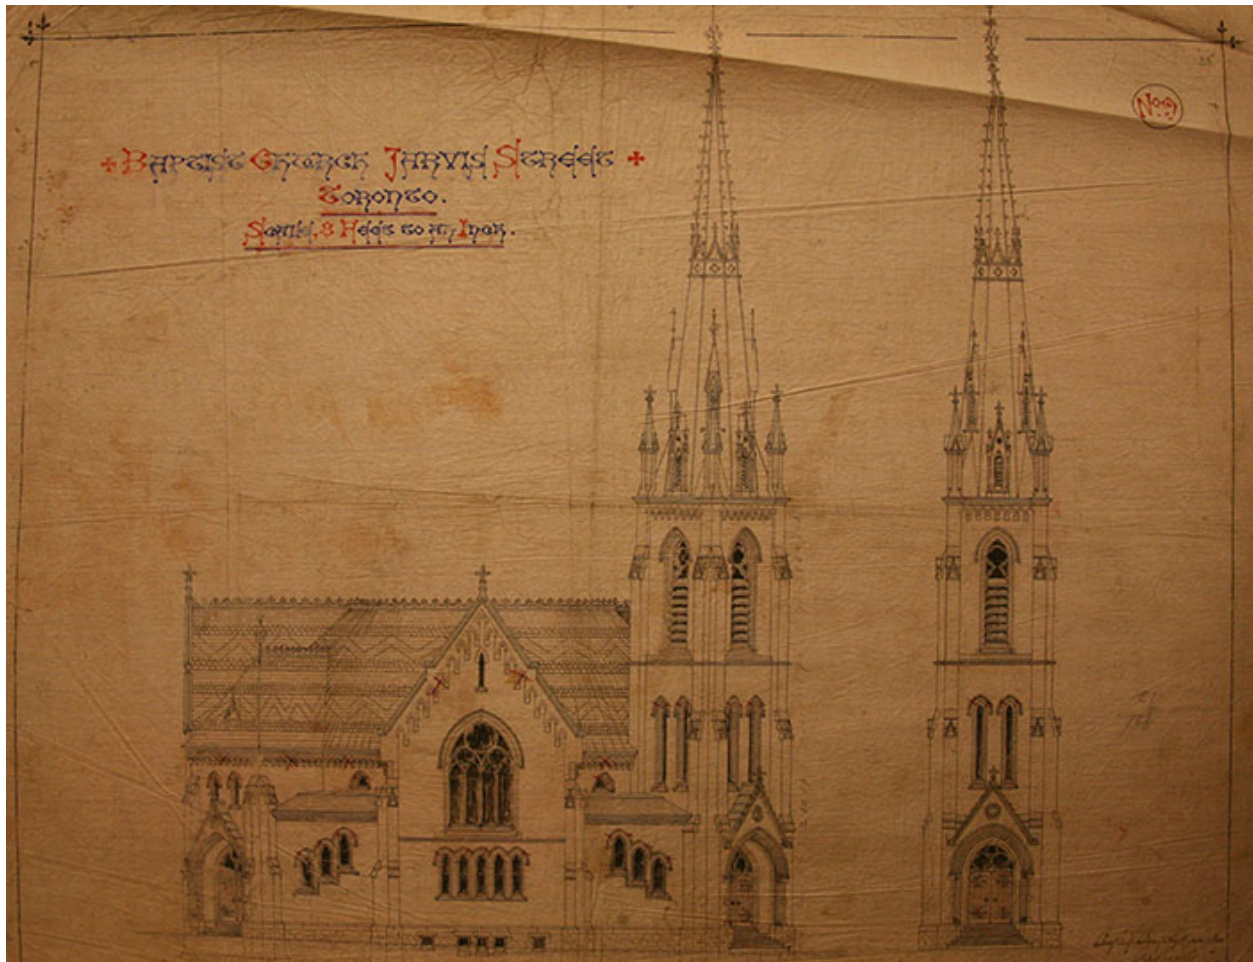 + Baptist Church Jarvis Street +
Toronto.
Scale, 8 Feet to an Inch.
No 9